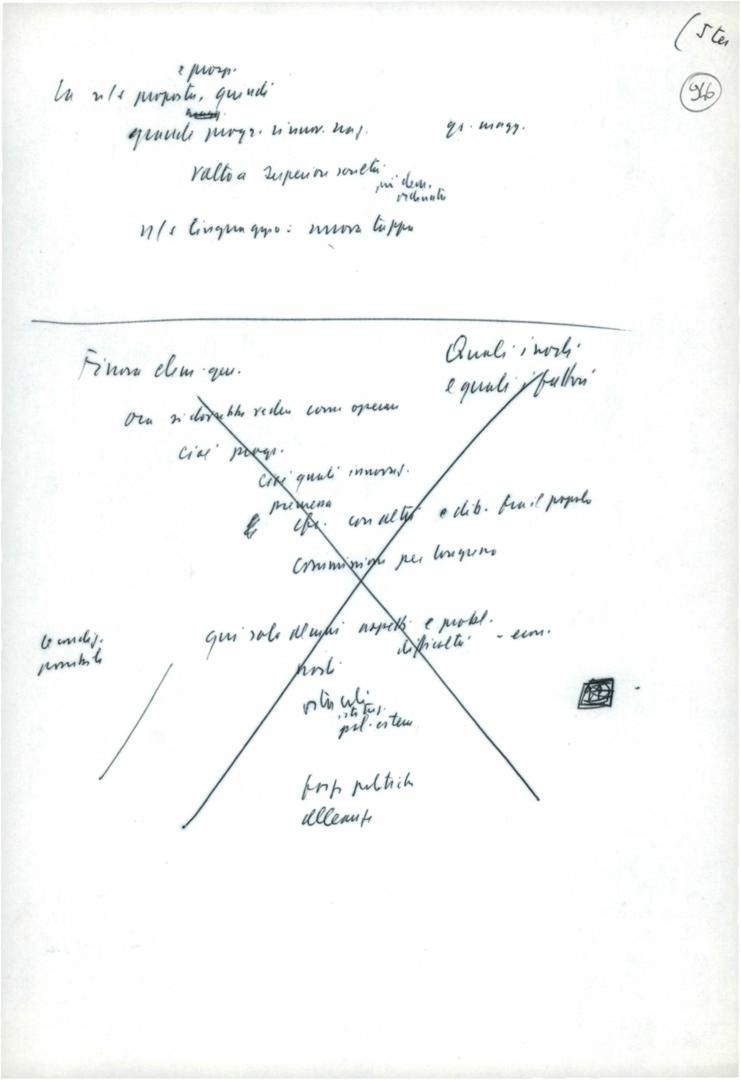 (5 ter
946
e prosp.
La n/s proposta, quindi
grande progr. rinnov. naz.
gr. magg.
volto a superiore società
più dem.
ordinata
n/s linguaggio: nuova tappa
Finora elem. gen.
Quali i nodi
e quali i fattori
Ora si dovrebbe vedere come operare
cioè progr.
cioè quali innovaz.
premessa
cfr. con altri e dib. fra il popolo
commissione per congresso
qui solo alcuni aspetti e probl.
difficoltà - econ.
le condiz.
possibili
nodi
ostacoli
istituz.
pol. estera
forze politiche
alleanze